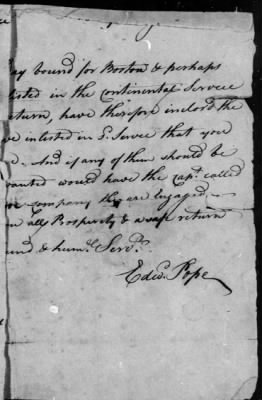 bound for Boston & perhaps
listed in the Continental Service
return, have therefore inclosd the
ve inlested in Sd. Service that you
And if any of them should be
wanted would have the Capt. called
company they are Engaged
all Prosperity & a safe return
and & humle. Servt.
Edwd. Pope